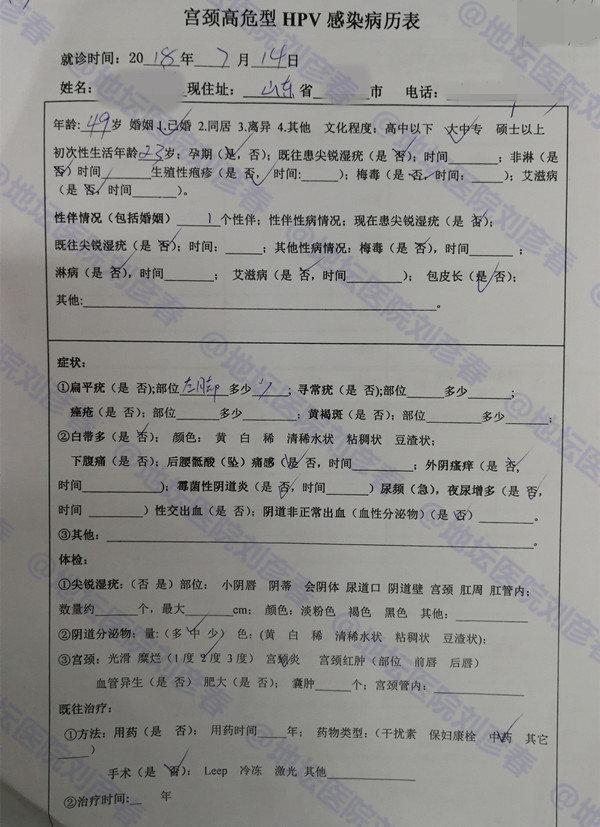 宫颈高危型 HPV 感染病历表
就诊时间：2018年7月14日
姓名： 现住址：山东省 市 电话：
年龄：49岁 婚姻 1.已婚 2.同居 3.离异 4.其他 文化程度：高中以下 大中专 硕士以上
初次性生活年龄23岁；孕期（是，否）；既往患尖锐湿疣（是 否）；时间______；非淋（是
否）时间______生殖性疱疹（是 否，时间：____）；梅毒（是 否，时间：____）；艾滋病
（是 否，时间______）。
性伴情况（包括婚姻）1个性伴；性伴性病情况；现在患尖锐湿疣（是 否）；
既往尖锐湿疣（是 否）；时间：____；其他性病情况：梅毒（是 否），时间______；
淋病（是 否），时间______； 艾滋病（是 否，时间______）； 包皮长（是 否）；
其他:______。
症状：
①扁平疣（是 否）；部位 多少 ；寻常疣（是 否）;部位____多少____；
痤疮（是 否）；部位____多少____； 黄褐斑（是 否）；部位____多少____；
②白带多（是 否）； 颜色： 黄 白 稀 清稀水状 粘稠状 豆渣状；
下腹痛（是 否）；后腰骶酸（坠）痛感（是 否，时间______； 外阴瘙痒（是 否，
时间______）；霉菌性阴道炎（是 否，时间____）尿频（急），夜尿增多（是 否，
时间______）性交出血（是 否）；阴道非正常出血（血性分泌物）（是 否）______。
③其他：______。
体检：
①尖锐湿疣：（否 是）部位： 小阴唇 阴蒂 会阴体 尿道口 阴道壁 宫颈 肛周 肛管内；
数量约____个，最大____cm； 颜色：淡粉色 褐色 黑色 其他：______
②阴道分泌物；量:（多 中 少） 色：（黄 白 稀 清稀水状 粘稠状 豆渣状）；
③宫颈：光滑 糜烂（1度 2度 3度） 宫颈炎 宫颈红肿（部位 前唇 后唇）
血管异生（是 否） 肥大（是 否）； 囊肿____个；宫颈管内：______
既往治疗：
①方法：用药（是 否）： 用药时间____年； 药物类型：（干扰素 保妇康栓 中药 其它
____）
手术（是 否）： Leep 冷冻 激光 其他______
②治疗时间:__ 年
@地坛医院刘彦春